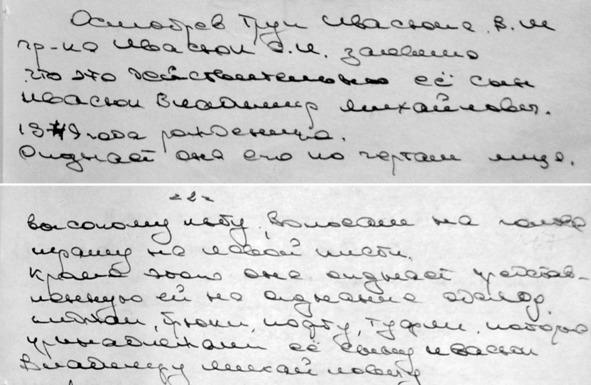 Осмотрев труп Ивасюка В.М
гр-ка Ивасюк С.И. заявила
что это действительно её сын
Ивасюк Владимир Михайлович.
1949 года рождения.
Опознаёт она его по чертам лица,
-2-
высокому лбу, волосам на голове
шраму на левой кисти.
Кроме этого она опознаёт представ-
ленную ей на опознание одежду.
плащ, брюки, кофту, туфли, которые
принадлежали её сыну Ивасюк
Владимиру Михайловичу